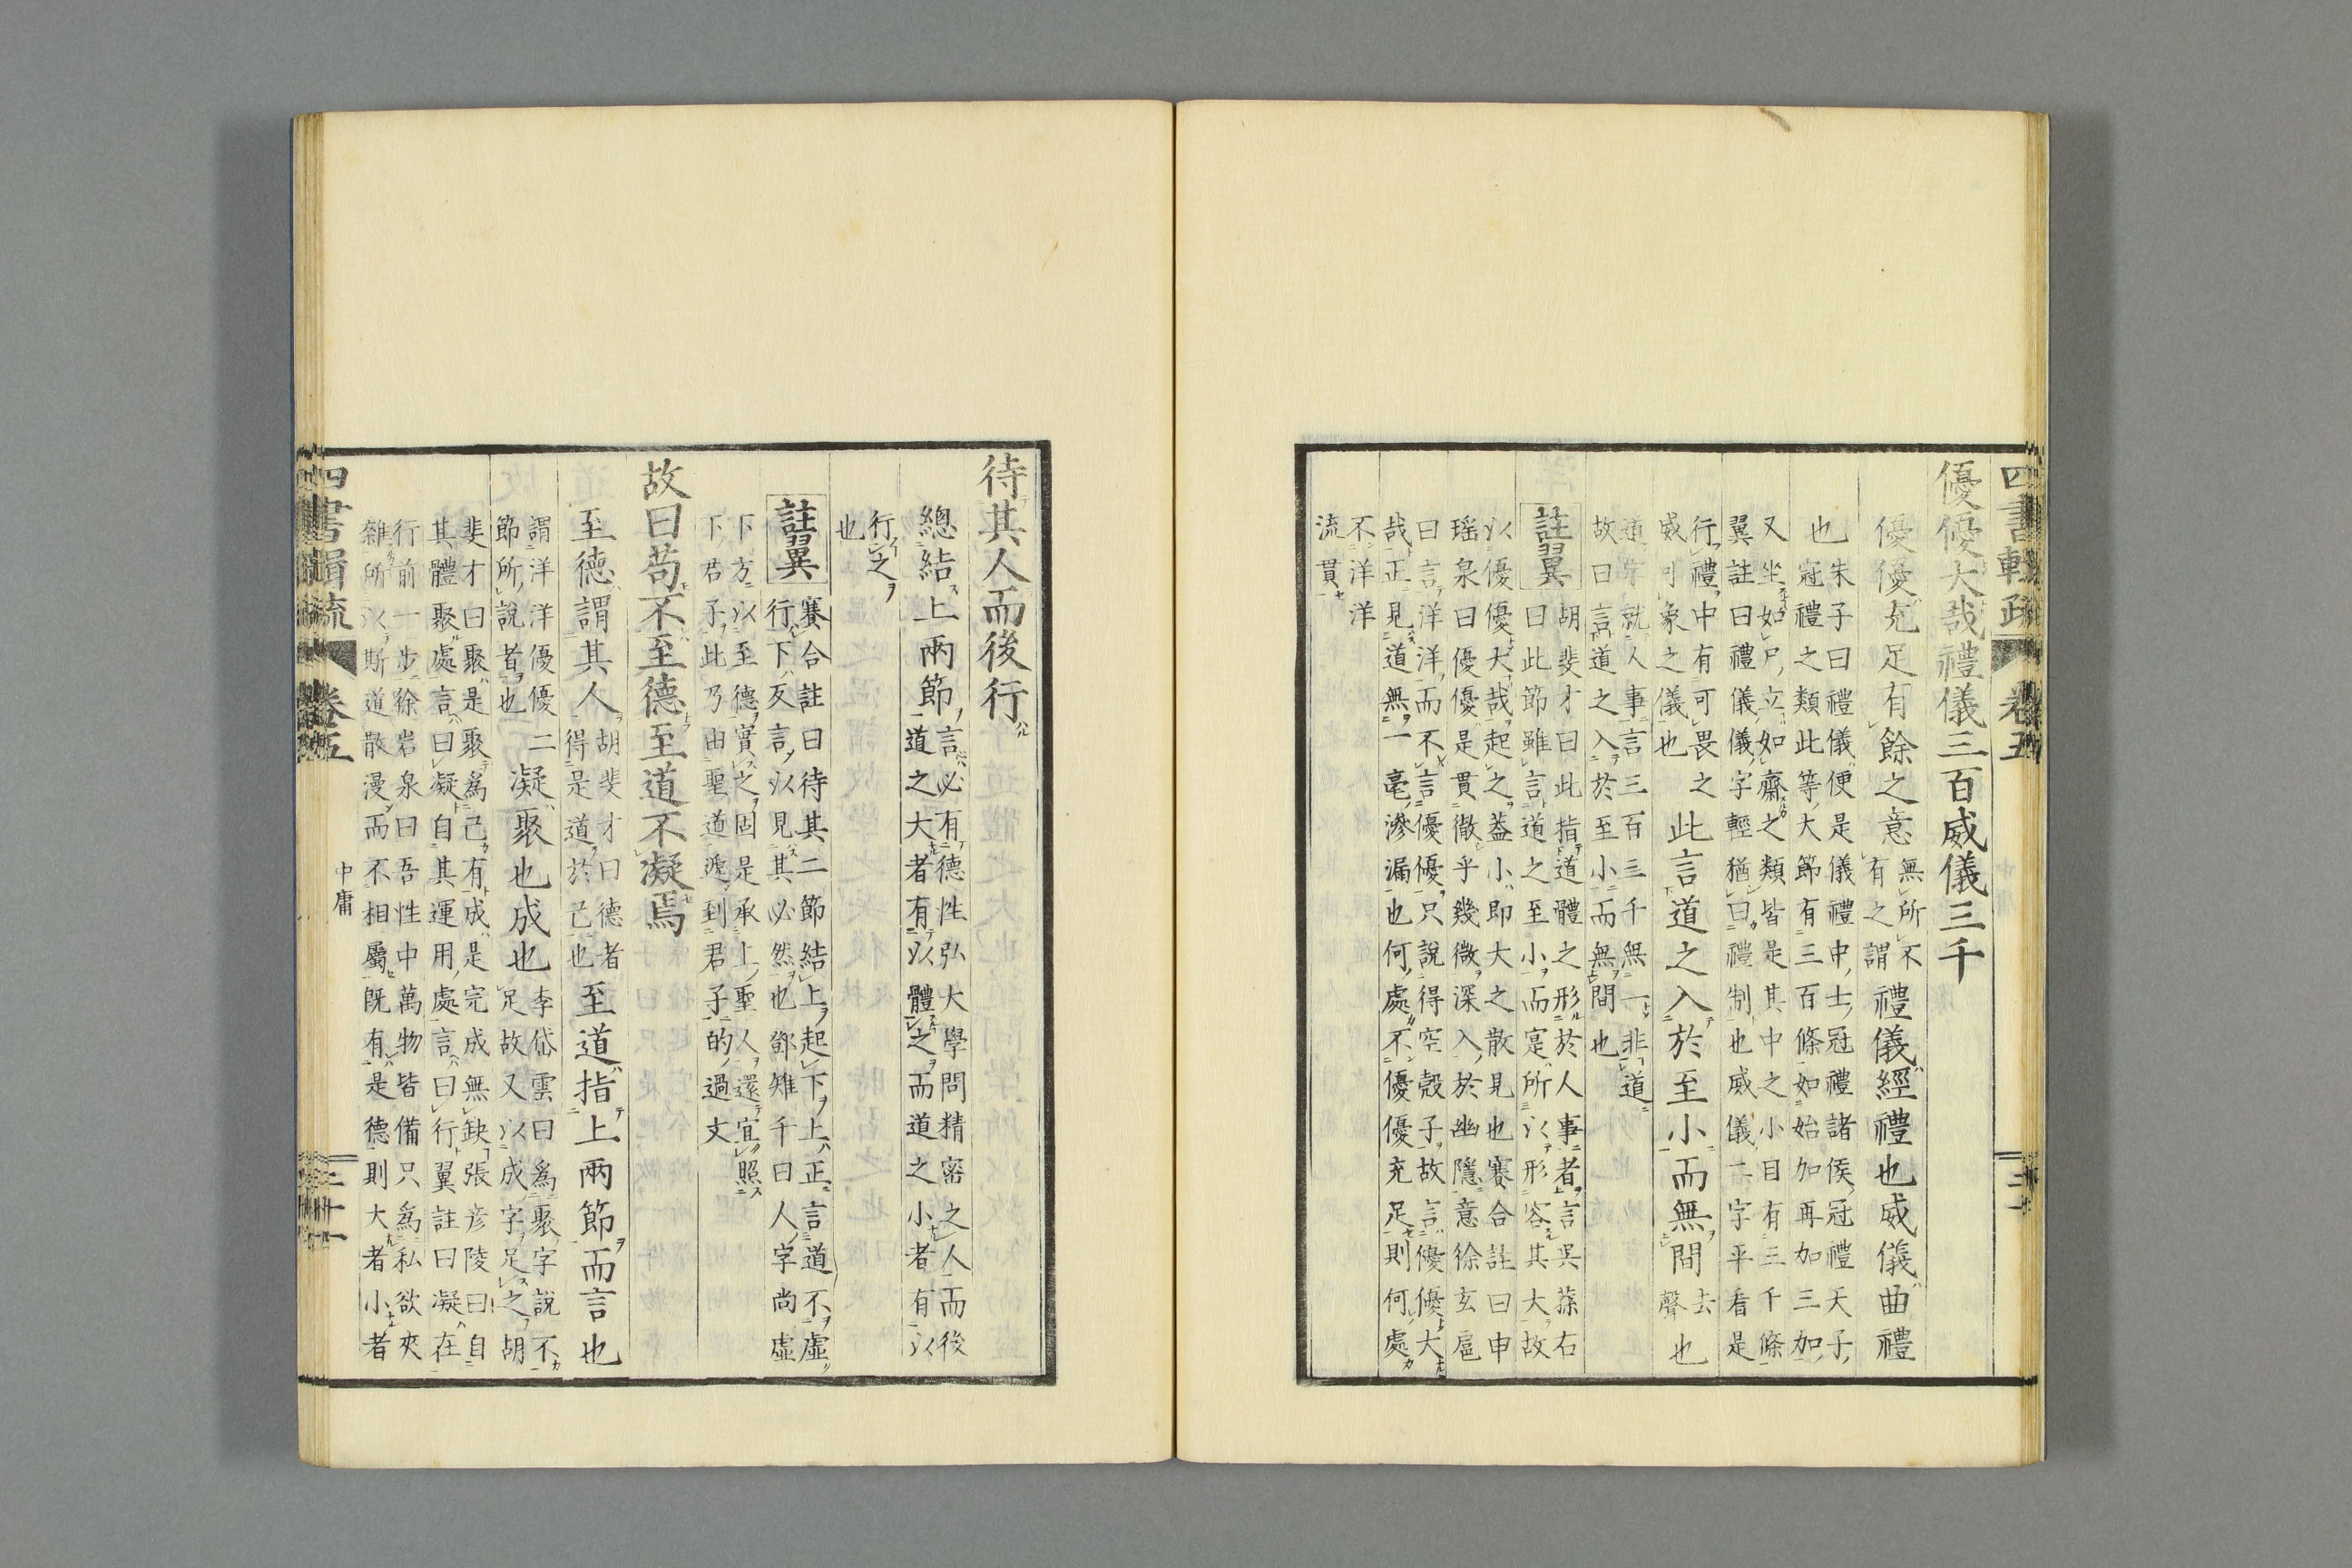 四書輯疏 卷五 三十一
優優大哉禮儀三百威儀三千
優優充足有餘之意無所不
有之謂禮儀經禮也威儀曲禮
也朱子曰禮儀便是儀禮中士冠禮諸侯冠禮天子
冠禮之類此等大節有三百條如始加再加三加
又坐如尸立如齋之類皆是其中之小目有三千條
翼註曰禮儀儀字輕猶曰禮制也威儀二字平看是
行禮中有可畏之
威可象之儀也此言道之入於至小而無間去
聲也
道字就人事言三百三千無一非道
故曰言道之入於至小而無間也
註翼胡斐才曰此指道體之形於人事者言吳蓀右
曰此節雖言道之至小而寔所以形容其大故
以優優大哉起之蓋小即大之散見也賽合註曰申
瑤泉曰優優是貫徹乎幾微深入於幽隱意徐玄扈
曰言洋洋而不言優優只說得空殼子故言優優大
哉正見道無一毫滲漏也何處不優優充足則何處
不洋洋
流貫
待其人而後行
總結上兩節言必有德性弘大學問精密之人而後
道之大者有以體之而道之小者有以
行之
也
註翼賽合註曰待其二節結上起下上正言道不虛
行下反言以見其必然也鄧雉千曰人字尚虛
下方以至德實之固是承上聖人還宜照
下君子此乃由聖道遞到君子的過文
故曰苟不至德至道不凝焉
至德謂其人胡斐才曰德者
得是道於己也至道指上兩節而言也
謂洋洋優優二
節所說者也凝聚也成也李岱雲曰為聚字說不
足故又以成字足之胡
斐才曰聚是聚為己有成是完成無缺張彥陵曰自
其體聚處言曰凝自其運用處言曰行翼註曰凝在
行前一步徐岩泉曰吾性中萬物皆備只為私欲夾
雜所以斯道散漫而不相屬既有是德則大者小者
四書輯疏 卷五 中庸 三十二